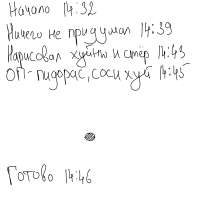 Начало 14:32
Ничего не придумал 14:39
Нарисовал хуйню и стёр 14:43
ОП-пидорас, соси хуй 14:45
Готово 14:46